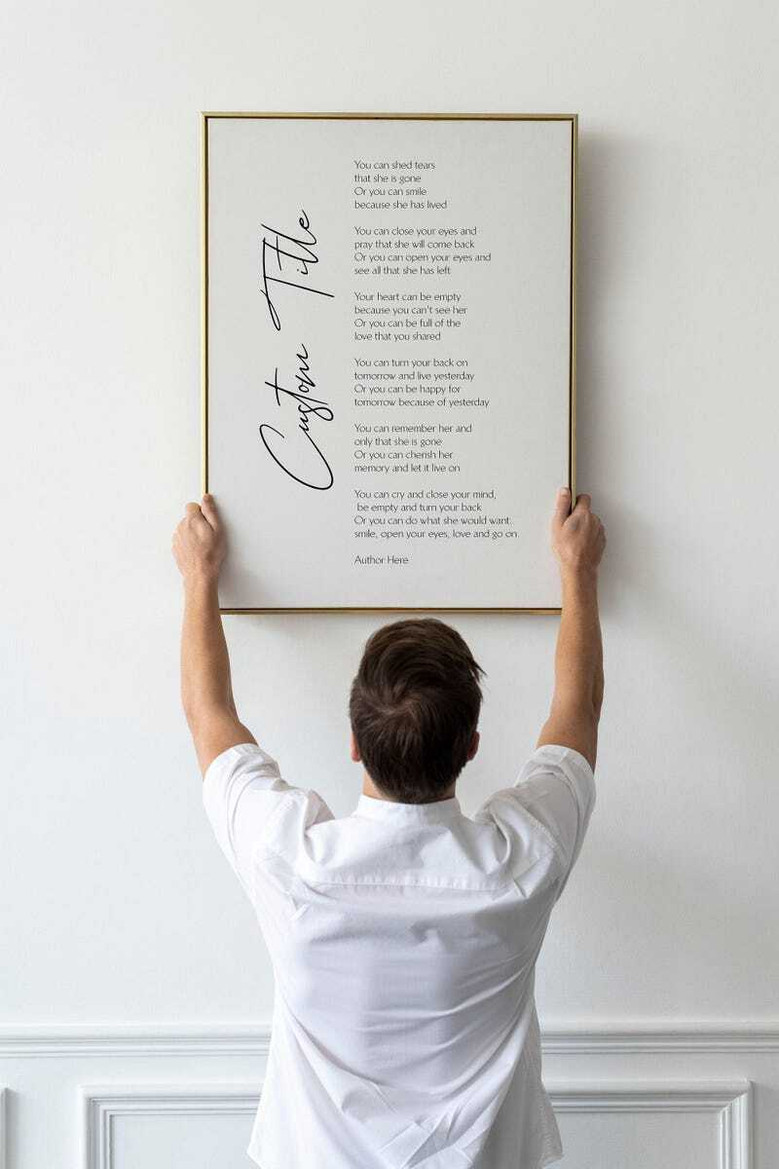 Custom Title
You can shed tears
that she is gone
Or you can smile
because she has lived
You can close your eyes and
pray that she will come back
Or you can open your eyes and
see all that she has left
Your heart can be empty
because you can't see her
Or you can be full of the
love that you shared
You can turn your back on
tomorrow and live yesterday
Or you can be happy for
tomorrow because of yesterday
You can remember her and
only that she is gone
Or you can cherish her
memory and let it live on
You can cry and close your mind,
be empty and turn your back
Or you can do what she would want.
smile, open your eyes, love and go on.
Author Here